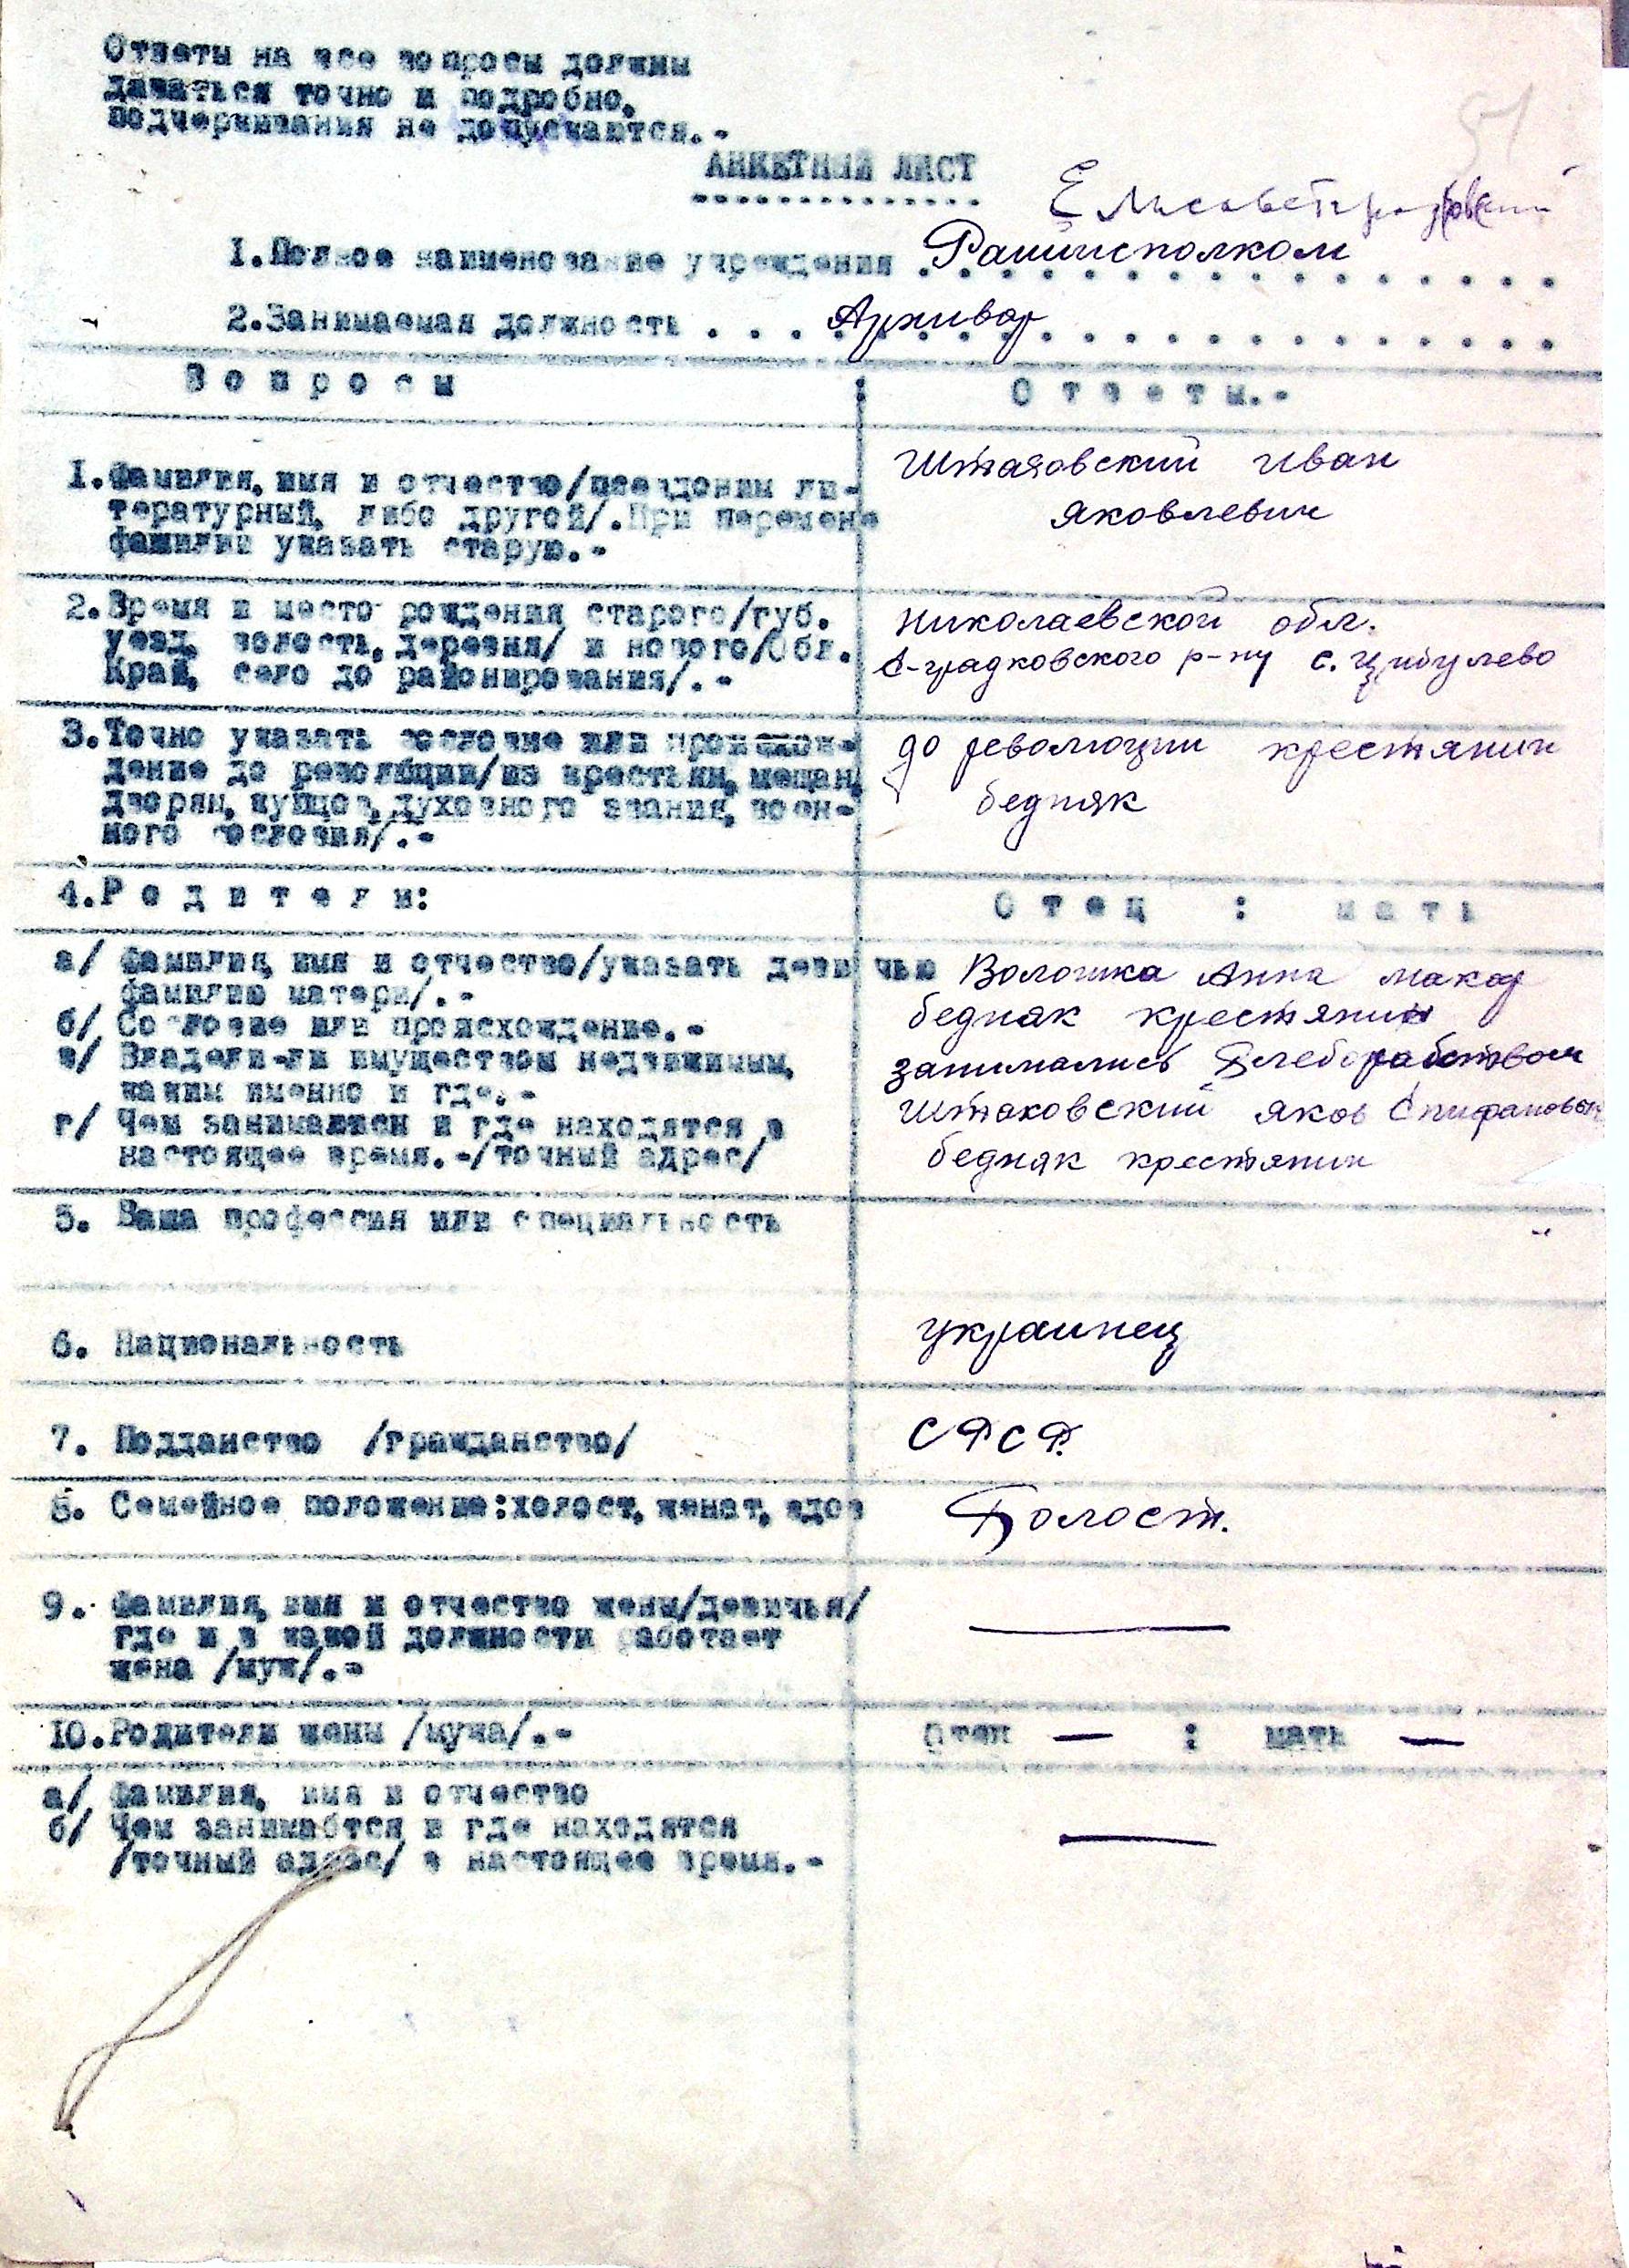 Ответы на все вопросы должны
даваться точно и подробно.
Подчеркивания не допускаются.-
51
АНКЕТНЫЙ ЛИСТ
Елисаветградковский
1.Полное наименование учреждения . Райисполком
2.Занимаемая должность . . . Архивар
Вопросы : Ответы.-
1.Фамилия, имя и отчество/псевдоним ли- Штаковский Иван
тературный, либо другой/.При перемене Яковлевич
фамилии указать старую.-
2.Время и место рождения старого/губ. Николаевской обл.
уезд, волость, деревня/ и нового/Обл. Е-градковского р-ну с. Цибулево
Край, село до районирования/.-
3.Точно указать сословие или происхож- до революции крестянин
дение до революции/из крестьян, мещан, бедняк
дворян, купцов, духовного звания, воен-
ного сословия/.-
4.Родители: Отец : мать
а/ Фамилия, имя и отчество/указать девичью Волошка Анна Макар
фамилию матери/.-
б/ Сословие или происхождение.- бедняк крестянин
в/ Владели-ли имуществом недвижимым, занимались Хлеборабством
каким именно и где.-
г/ Чем занимаются и где находятся в Штаковский Яков Епифанович
настоящее время.-/точный адрес/ бедняк крестянин
5. Ваша профессия или специальность
6. Национальность украинец
7. Подданство /гражданство/ СРСР.
8. Семейное положение:холост, женат, вдов Холост.
9. Фамилия, имя и отчество жены/девичья/ —
где и в какой должности работает
жена /муж/.-
10.Родители жены /мужа/.- Отец — : мать —
а/ Фамилия, имя и отчество
б/ Чем занимаются и где находятся —
/точный адрес/ в настоящее время.-